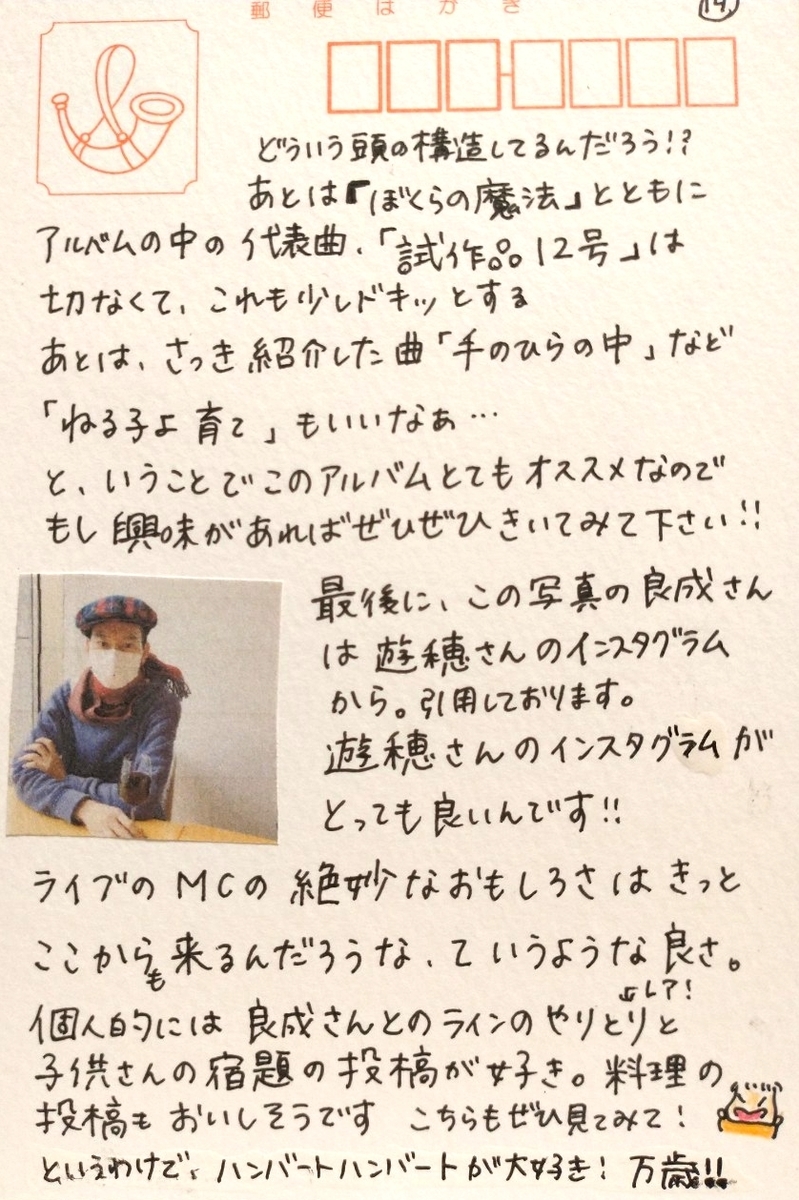 郵便はがき
14.
どういう頭の構造してるんだろう!?
あとは『ぼくらの魔法』とともに
アルバムの中の代表曲、「試作品12号」は
切なくて、これも少しドキッとする
あとは、さっき紹介した曲「手のひらの中」など
「ねる子よ育て」もいいなぁ…
と、いうことでこのアルバムとてもオススメなので
もし興味があればぜひぜひきいてみて下さい!!
最後に、この写真の良成さん
は遊穂さんのインスタグラム
から。引用しております。
遊穂さんのインスタグラムが
とっても良いんです!!
ライブのMCの絶妙なおもしろさはきっと
ここからも来るんだろうな、ていうような良さ。
レア!
個人的には良成さんとのラインのやりとりと
子供さんの宿題の投稿が好き。料理の
投稿もおいしそうです こちらもぜひ見てみて!
というわけで、ハンバートハンバートが大好き! 万歳!!